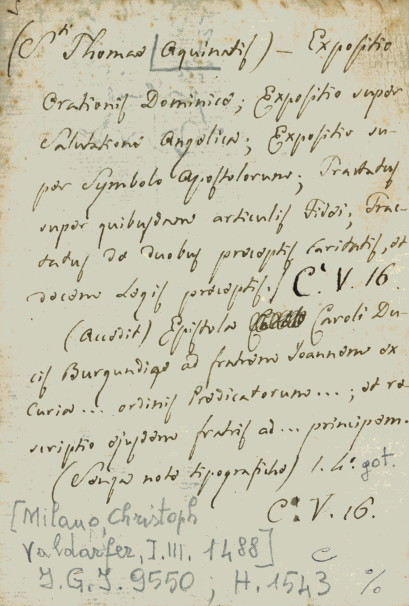 (Sti Thomae Aquinatis) — Expositio
Orationis Dominice; Expositio super
Salutatione Angelica; Expositio su-
per Symbolo Apostolorum; Tractatus
super quibusdam articulis Fidei; Trac-
tatus de duobus preceptis Caritatis, et
decem Legis preceptis.) C. V. 16.
(Accedit) Epistola Caroli Du-
cis Burgundiae ad fratrem Joannem ex
Curia ... ordinis Predicatorum ...; et re
scriptio ejusdem fratris ad ... principem.
(Senza note tipografiche) 1. 4.° got.
C. V. 16.
[Milano, Christoph
Valdarfer, I.III. 1488]
I.G.I. 9550 ; H. 1543 %